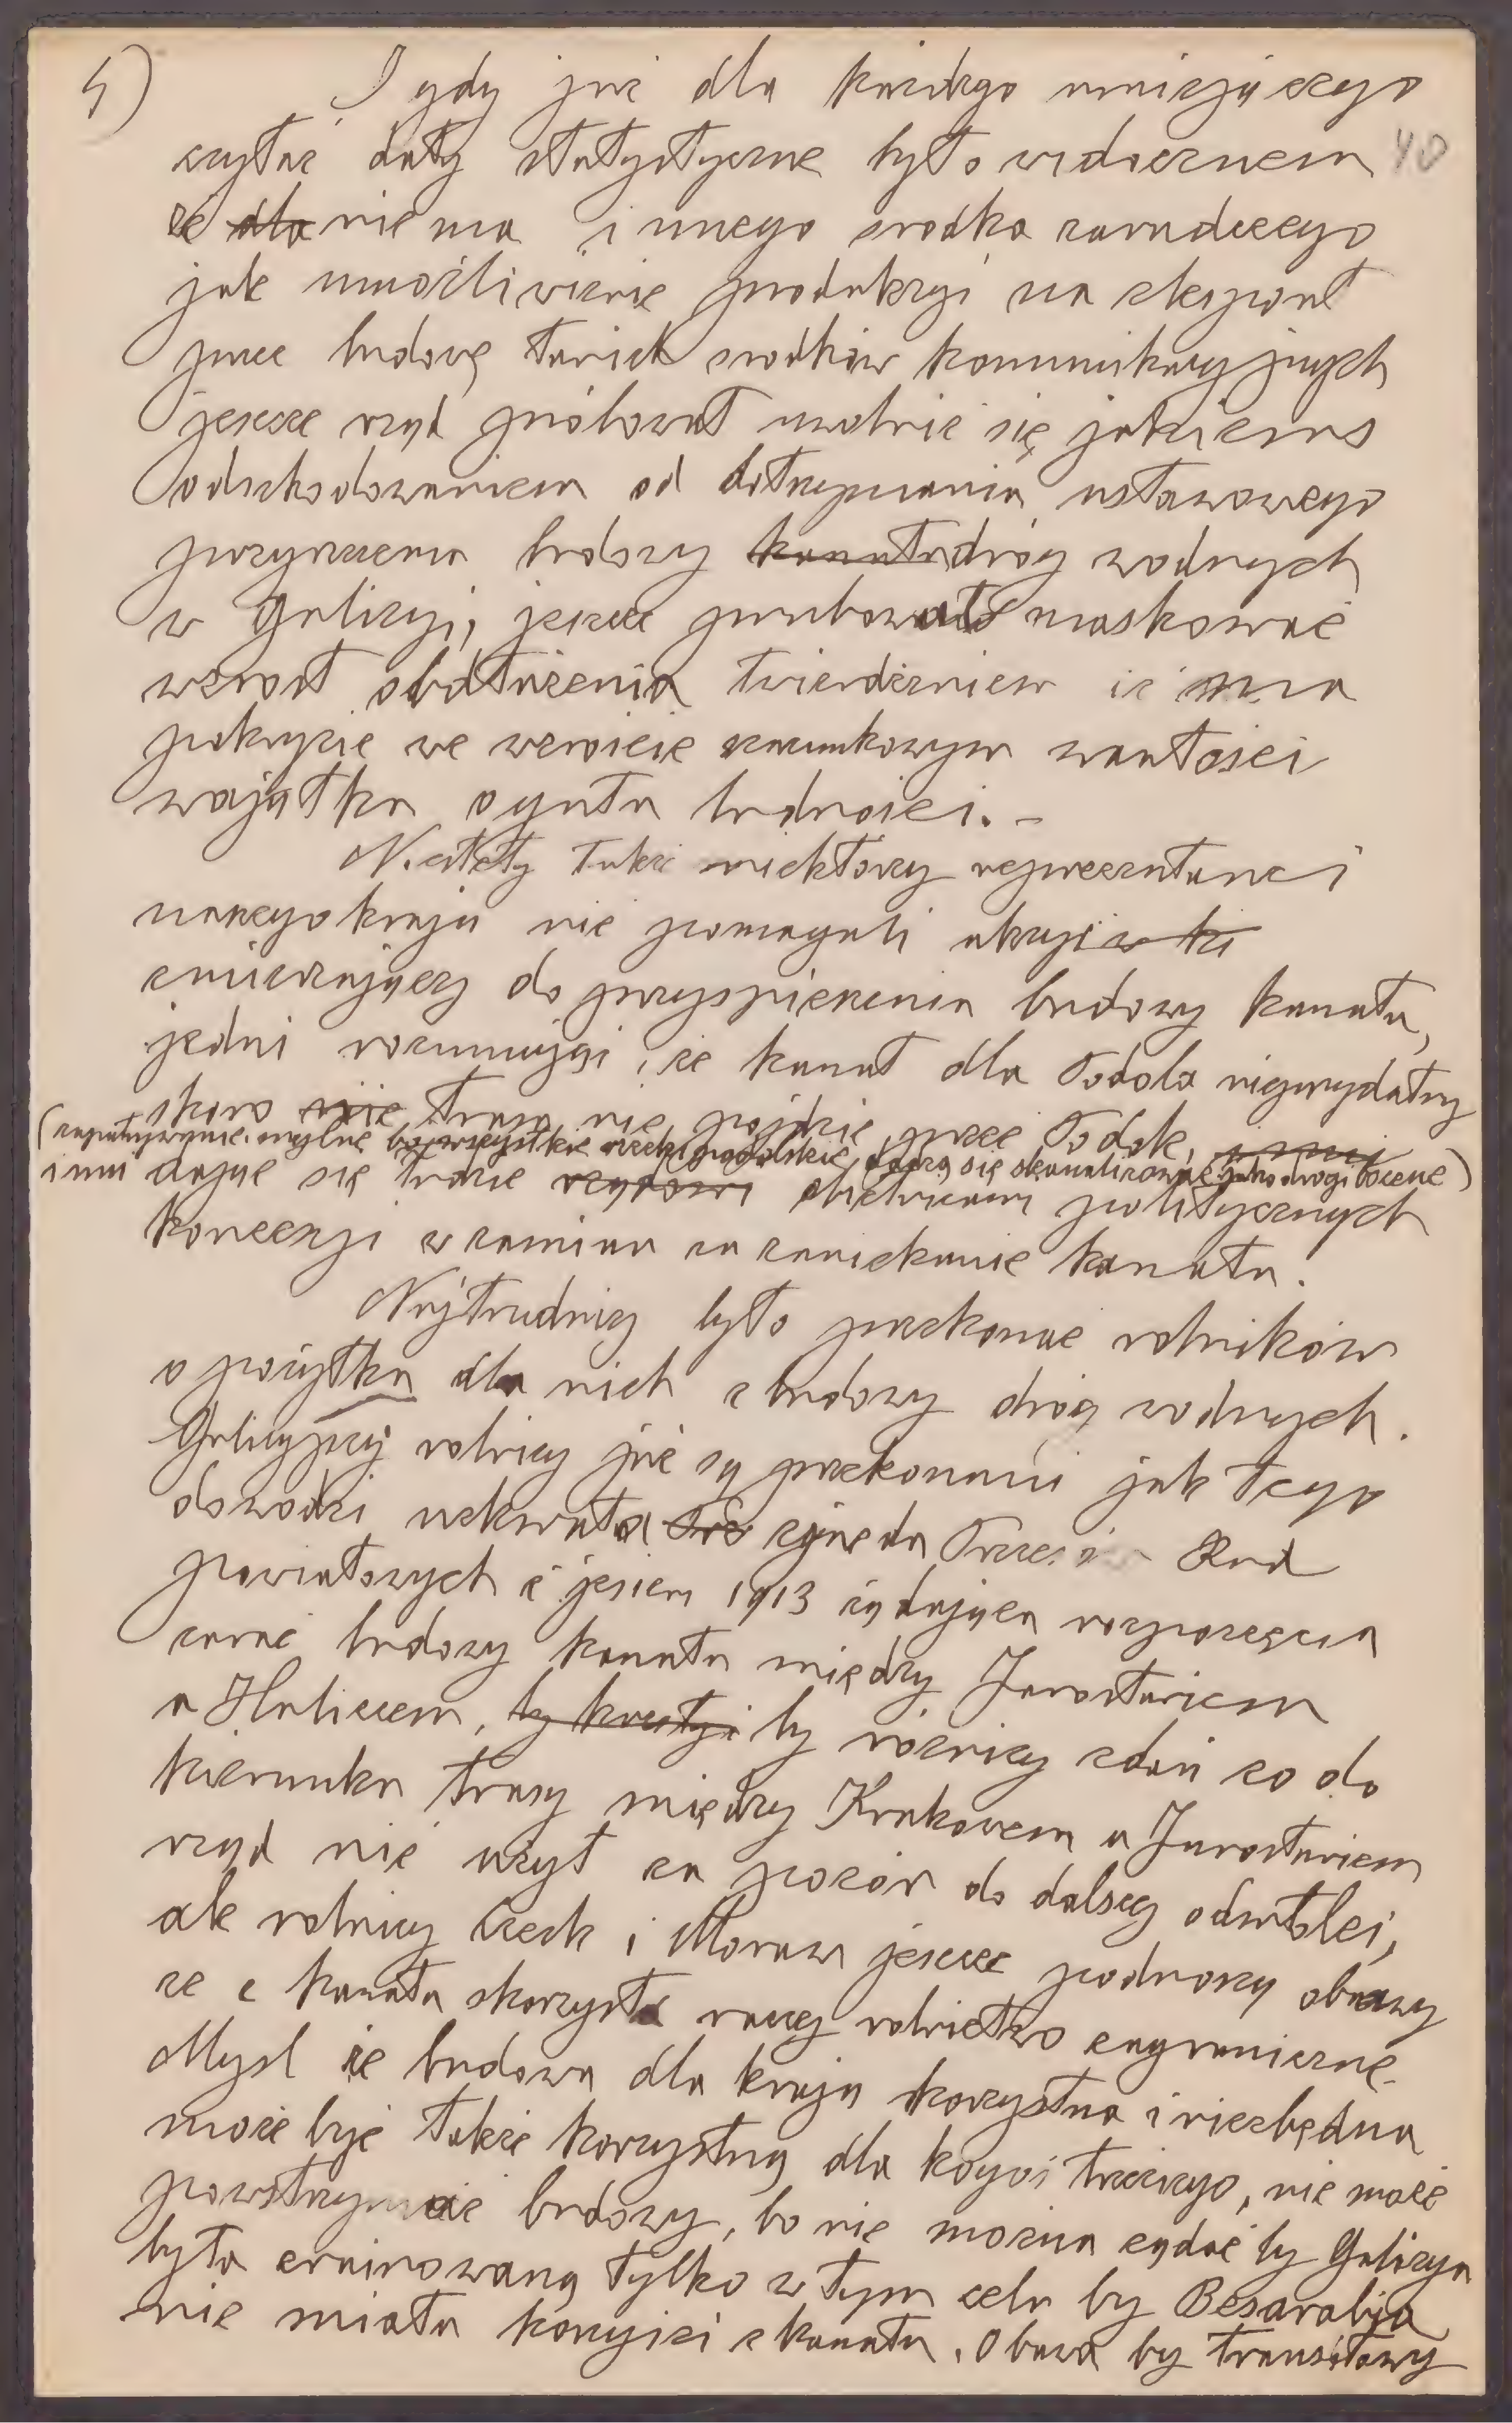 5)
I gdy już dla każdego umiejącego
czytać daty statystyczne było widocznem 40
że dla nie ma innego środka zaradczego
jak umożliwienie produkcyi na eksport
przez budowę tanich środków komunikacyjnych
jeszcze rząd próbował uwolnić się jakiemś
odszkodowaniem od dotrzymania ustawowego
przyrzeczenia budowy kanału dróg wodnych
w Galicyi, jeszcze próbował maskować
wzrost obdłużenia twierdzeniem iż ma
pokrycie we wzroście szacunkowym wartości
majątku ogółu ludności. -
Niestety także niektórzy reprezentanci
naszego kraju nie pomagali akcyi w ki
zmierzającej do przyspieszenia budowy kanału,
jedni rozumując, że kanał dla Podola nieprzydatny
skoro nie trasa nie pójdzie przez Podole,
(zapatrywanie mylne bo wszystkie rzeki podolskie dadzą się skanalizować jako drogi boczne)
inni dając się łudzić rządowi obietnicami politycznych
koncesyi w zamian za zaniechanie kanału.
Najtrudniej było przekonać rolników
o pożytku dla nich z budowy dróg wodnych.
Galicyjscy rolnicy już są przekonani jak tego
dowodzi uchwała zjazdu Prezesów Rad
powiatowych z jesieni 1913 żądająca rozpoczęcia
zaraz budowy kanału między Jarosławiem
a Haliczem, by kwestyi by różnicy zdań co do
kierunku trasy między Krakowem a Jarosławiem
rząd nie użył za pozór do dalszej odwłoki,
ale rolnicy Czech i Moraw jeszcze podnoszą obawy
że z kanału skorzysta raczej rolnictwo zagraniczne.
Myśl że budowa dla kraju korzystna i niezbędna
może być także korzystną dla kogoś trzeciego, nie może
powstrzymać budowy, bo nie można żądać by Galicya
była zrujnowaną tylko w tym celu by Besarabja
nie miała korzyści z kanału. Obawa by transitowy